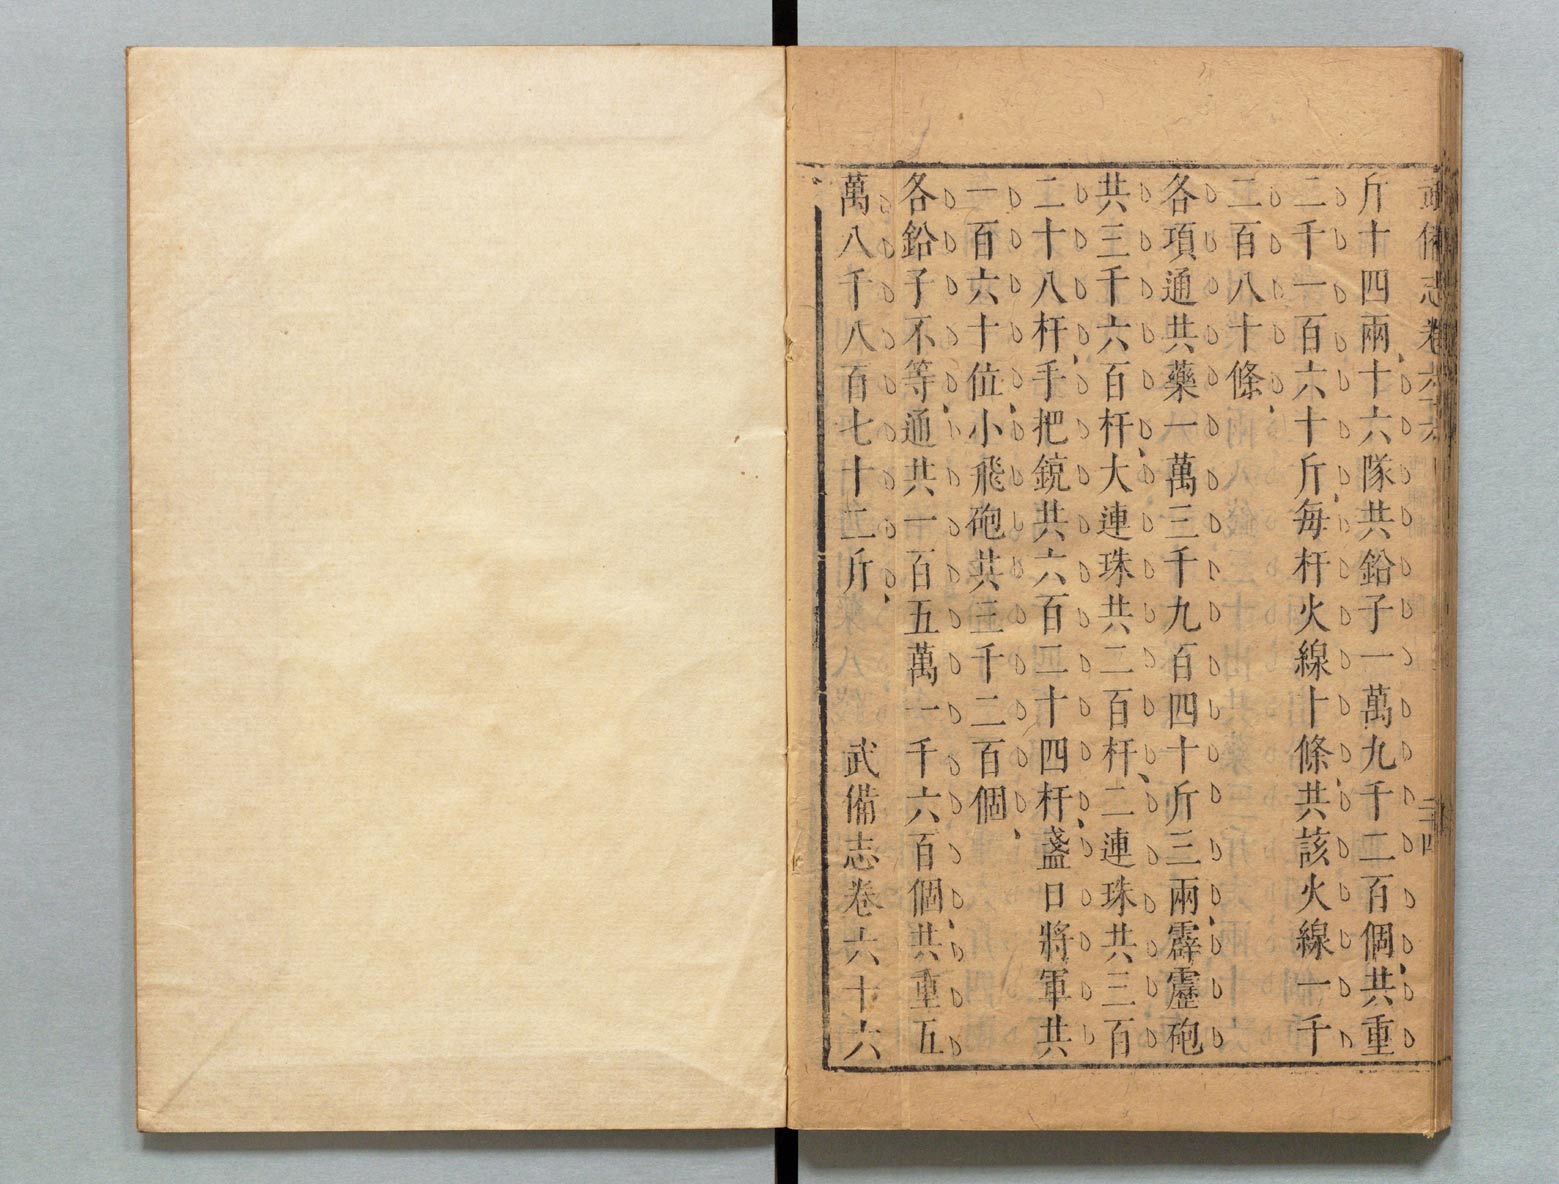 武備志卷六十六
二十四
斤十四兩、十六隊共鉛子一萬九千二百個、共重
三千一百六十斤、每杆火線十條、共該火線一千
二百八十條、
各項通共藥一萬三千九百四十斤三兩、霹靂砲
共三千六百杆、大連珠共二百杆、二連珠共三百
二十八杆、手把銃共六百二十四杆、盞口將軍共
一百六十位、小飛砲共三千二百個、
各鉛子不等、通共一百五萬一千六百個、共重五
萬八千八百七十二斤、
武備志卷六十六